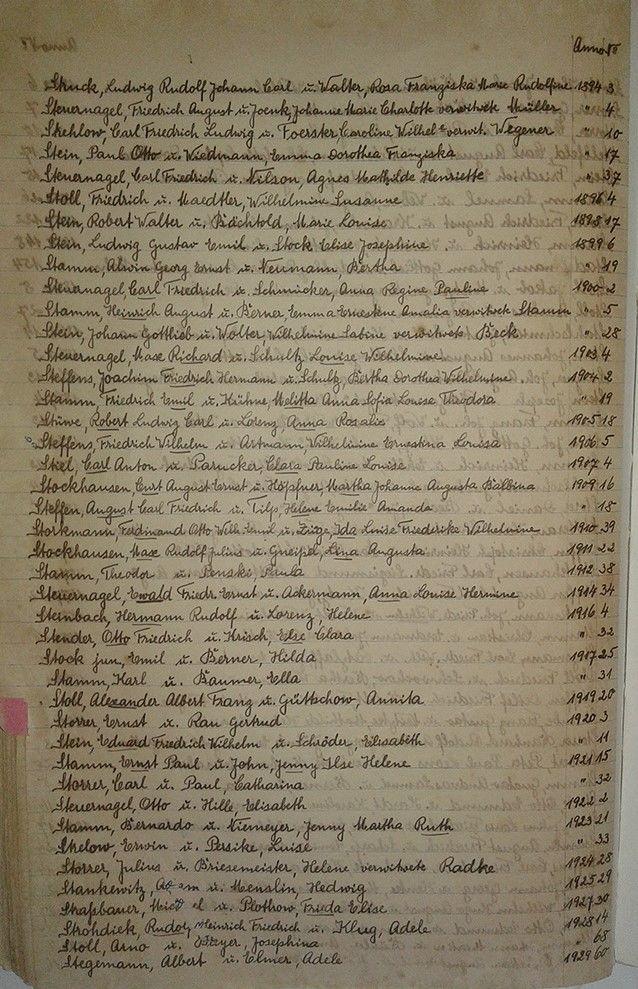 Anno №
Struck, Ludwig Rudolf Johann Carl u. Walter, Rosa Franziska Marie Rudolfine 1894 3
Steuernagel, Friedrich August u. Joenk, Johanne Marie Charlotte verwitwet Müller " 4
Stehlow, Carl Friedrich Ludwig u. Foerster, Caroline Wilhel verwit. Wegener " 10
Stein, Paul Otto u. Wiedmann, Emma Dorothea Franziska " 17
Steuernagel, Carl Friedrich u. Nilson, Agnes Mathilde Henriette " 37
Stoll, Friedrich u. Maedtler, Wilhelmine Susanne 1896 4
Stein, Robert Walter u. Bächtold, Marie Louise 1898 17
Stein, Ludwig Gustav Emil u. Stock Elise Josephine 1899 6
Stamm, Alwin Georg Ernst u. Neumann, Bertha " 19
Steuernagel, Carl Friedrich u. Schmücker, Anna Regine Pauline 1900 2
Stamm, Heinrich August u. Berner Emma Ernestine Amalia verwitwet Stamm " 5
Stein, Johann Gottlieb u. Wolter, Wilhelmine Sabine verwitwet Beck " 28
Steuernagel, Maxe Richard u. Schultz, Louise Wilhelmine 1903 4
Steffens, Joachim Friedrich Hermann u. Schultz, Bertha Dorothea Wilhelmine 1904 2
Stamm, Friedrich Emil u. Kühne, Melitta Anna Sofia Louise Theodora " 19
Stüwe, Robert Ludwig Carl u. Lorenz, Anna Rosalie 1905 18
Steffens, Friedrich Wilhelm u. Artmann, Wilhelmine Ernestina Louisa 1906 5
Stiel, Carl Anton u. Parucker, Clara Pauline Louise 1907 4
Stockhausen, Curt August Ernst u. Höpfner, Martha Johanne Augusta Balbina 1909 16
Steffen, August Carl Friedrich u. Tilp, Helene Emilie Amanda " 18
Storkmann Ferdinand Otto Wilh. Emil u. Ida Luise Friederike Wilhelmine 1910 39
Stockhausen, Maxe Rudolf Julius u. Gneipel, Lina Augusta 1911 22
Stamm, Theodor u. Penski Paula 1912 38
Steuernagel, Ewald Friedr. Ernst u. Ackermann, Anna Louise Hermine 1914 34
Steinbach, Hermann Rudolf u. Lorenz, Helene 1916 4
Stender, Otto Friedrich u. Krisch, Else Clara " 32
Stock jun, Emil u. Berner, Hilda 1917 25
Stamm, Karl u. Baumer, Ella " 31
Stoll, Alexander Albert Franz u. Güttschow, Annita 1919 20
Storrer, Ernst u. Rau Gertrud 1920 3
Stein, Eduard Friedrich Wilhelm u. Schröder, Elisabeth " 11
Stamm, Ernst Paul u. John, Jenny Ilse Helene 1921 15
Storrer, Carl u. Paul, Catharina " 32
Steuernagel, Otto u. Hille, Elisabeth 1922 2
Stamm, Bernardo u. Niemeyer, Jenny Martha Ruth 1923 21
Stelow, Erwin u. Persike, Luise " 33
Storrer, Julius u. Briesemeister, Helene verwitwete Radke 1924 28
Stankewitz, u. Menslin, Hedwig 1925 29
Straßbauer, u. Plothow, Frieda Elise 1927 30
Strohdiek, Rudolf Heinrich Friedrich u. Klug, Adele 1928 14
Stoll, Arno u. Josephina " 68
Stegemann, Albert u. Elmer, Adele 1929 60